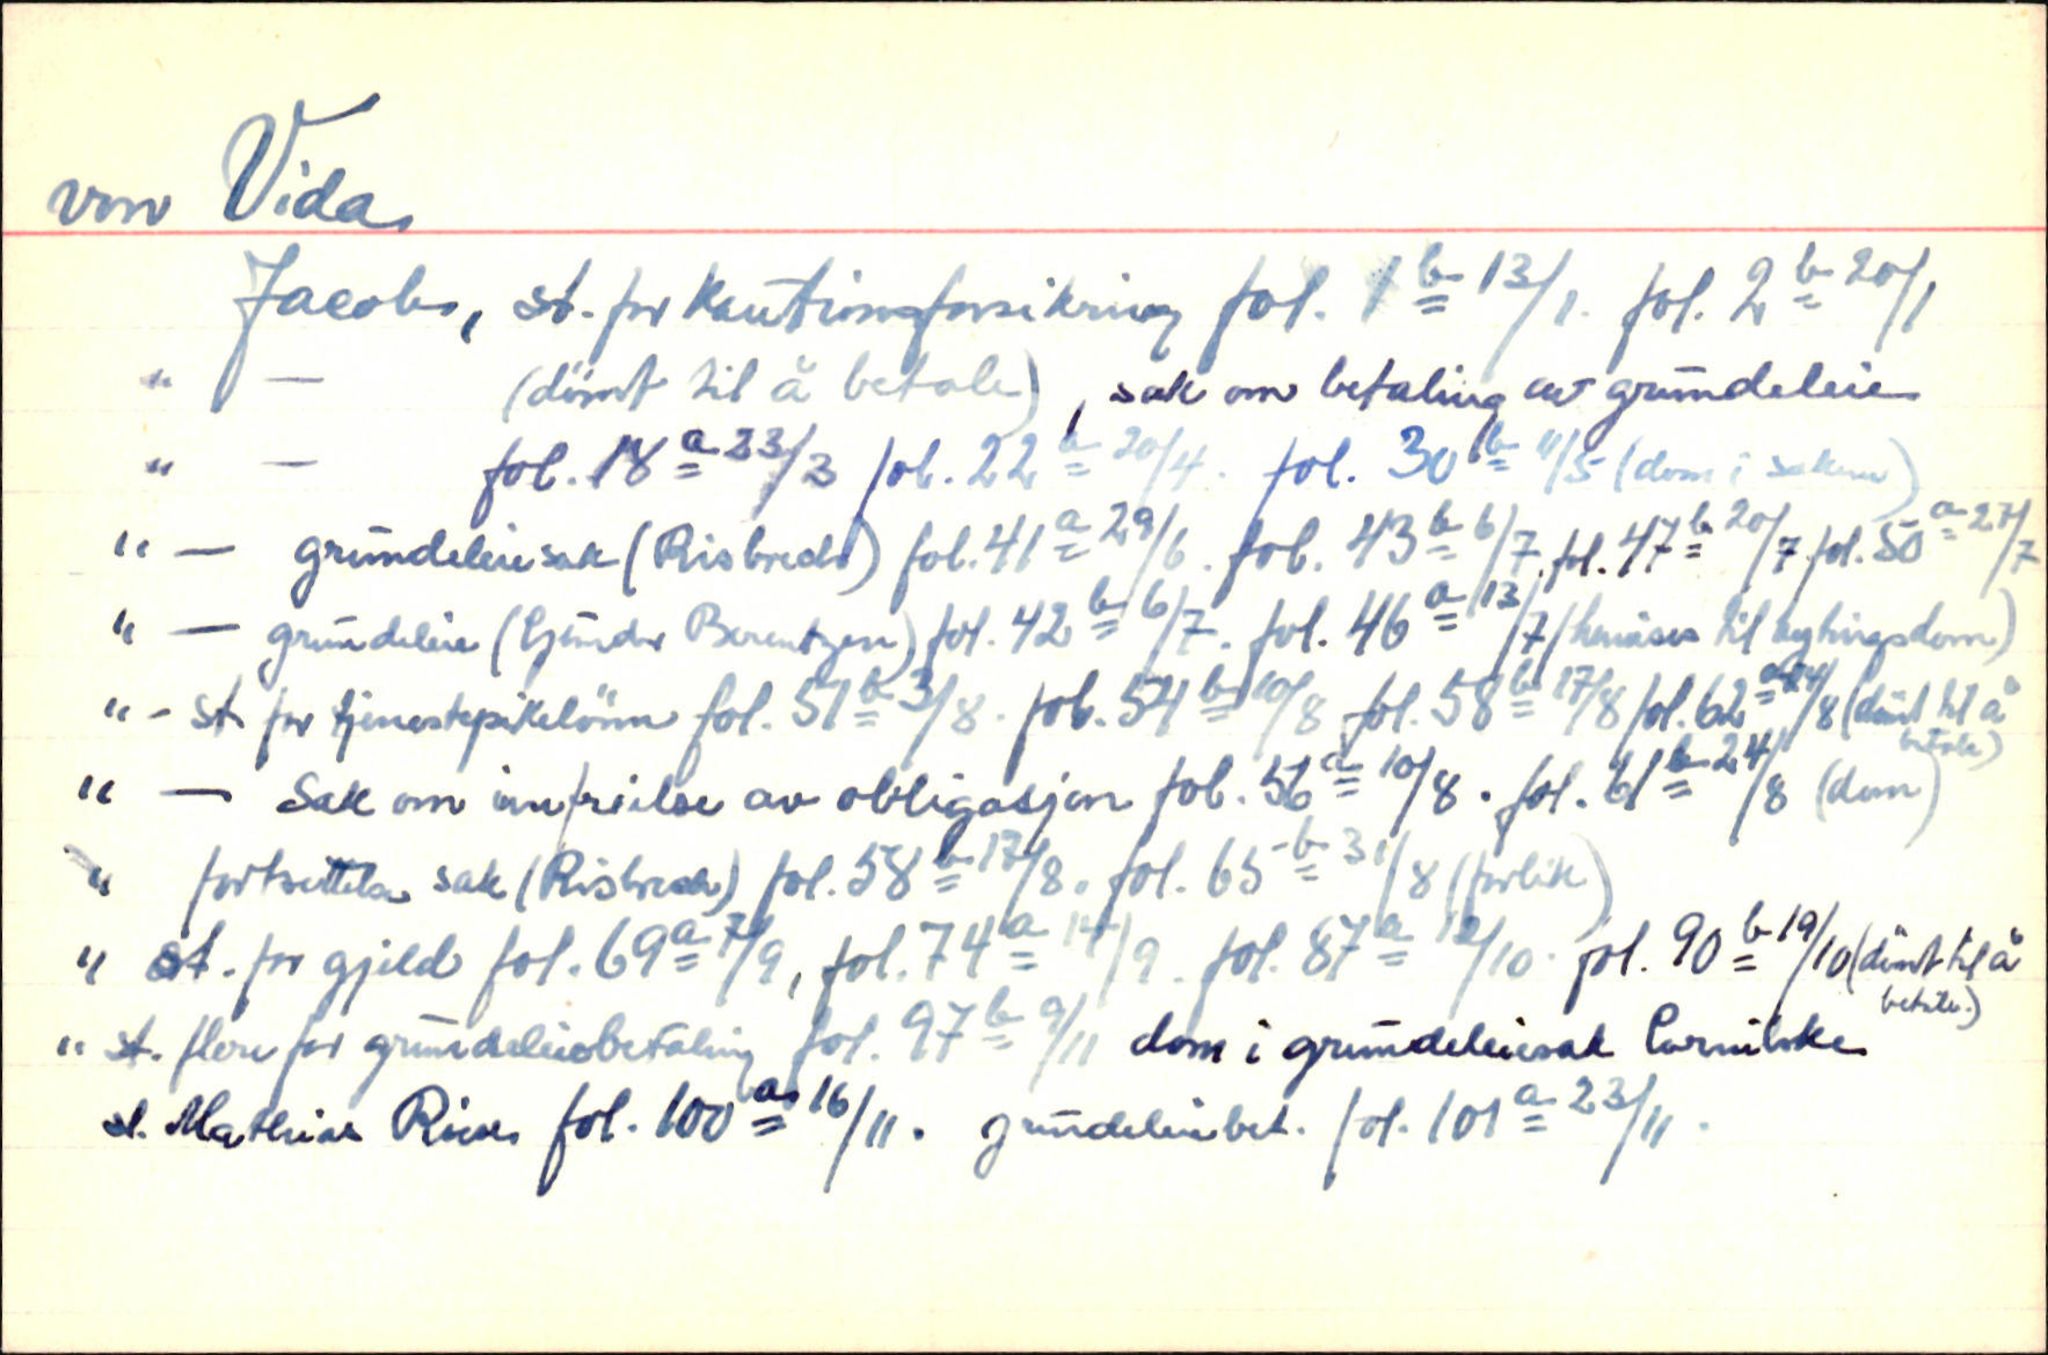 von Vida
Jacob, st. for kautionsforsikring fol. 1 b 13/1. fol. 2 b 20/1
" — (dömt til å betale), sak om betaling av grundeleie
" — fol. 18 a 23/3 fol. 22 b 20/4. fol. 30 b 11/5 (dom i saken)
" — grundeleiesak (Risbrech) fol. 41 a 29/6. fol. 43 b 6/7. fol. 47 b 20/7 fol. 50 a 27/7
" — grundeleie (Ejendr Berentzen) fol. 42 b 6/7. fol. 46 a 13/7 (henvises til bytingsdom)
" - st. for tjenestepikelönn fol. 51 b 3/8. fol. 54 b 10/8 fol. 58 b 17/8 fol. 62 a 24/8 (dömt til å
betale)
" — Sak om innfrielse av obligasjon fol. 56 a 10/8. fol. 61 b 24/8 (dom)
" fortsettelse sak (Risbrech) fol. 58 b 17/8. fol. 65 b 31/8 (forlik)
" st. for gjeld fol. 69 a 7/9, fol. 74 a 14/9. fol. 87 a 12/10. fol. 90 b 19/10 (dömt til å
betale.)
" st. flere for grundeleiebetaling fol. 97 b 9/11 dom i grundeleiesak
st. Mathias fol. 100 a 16/11. grundeleiebet. fol. 101 a 23/11.